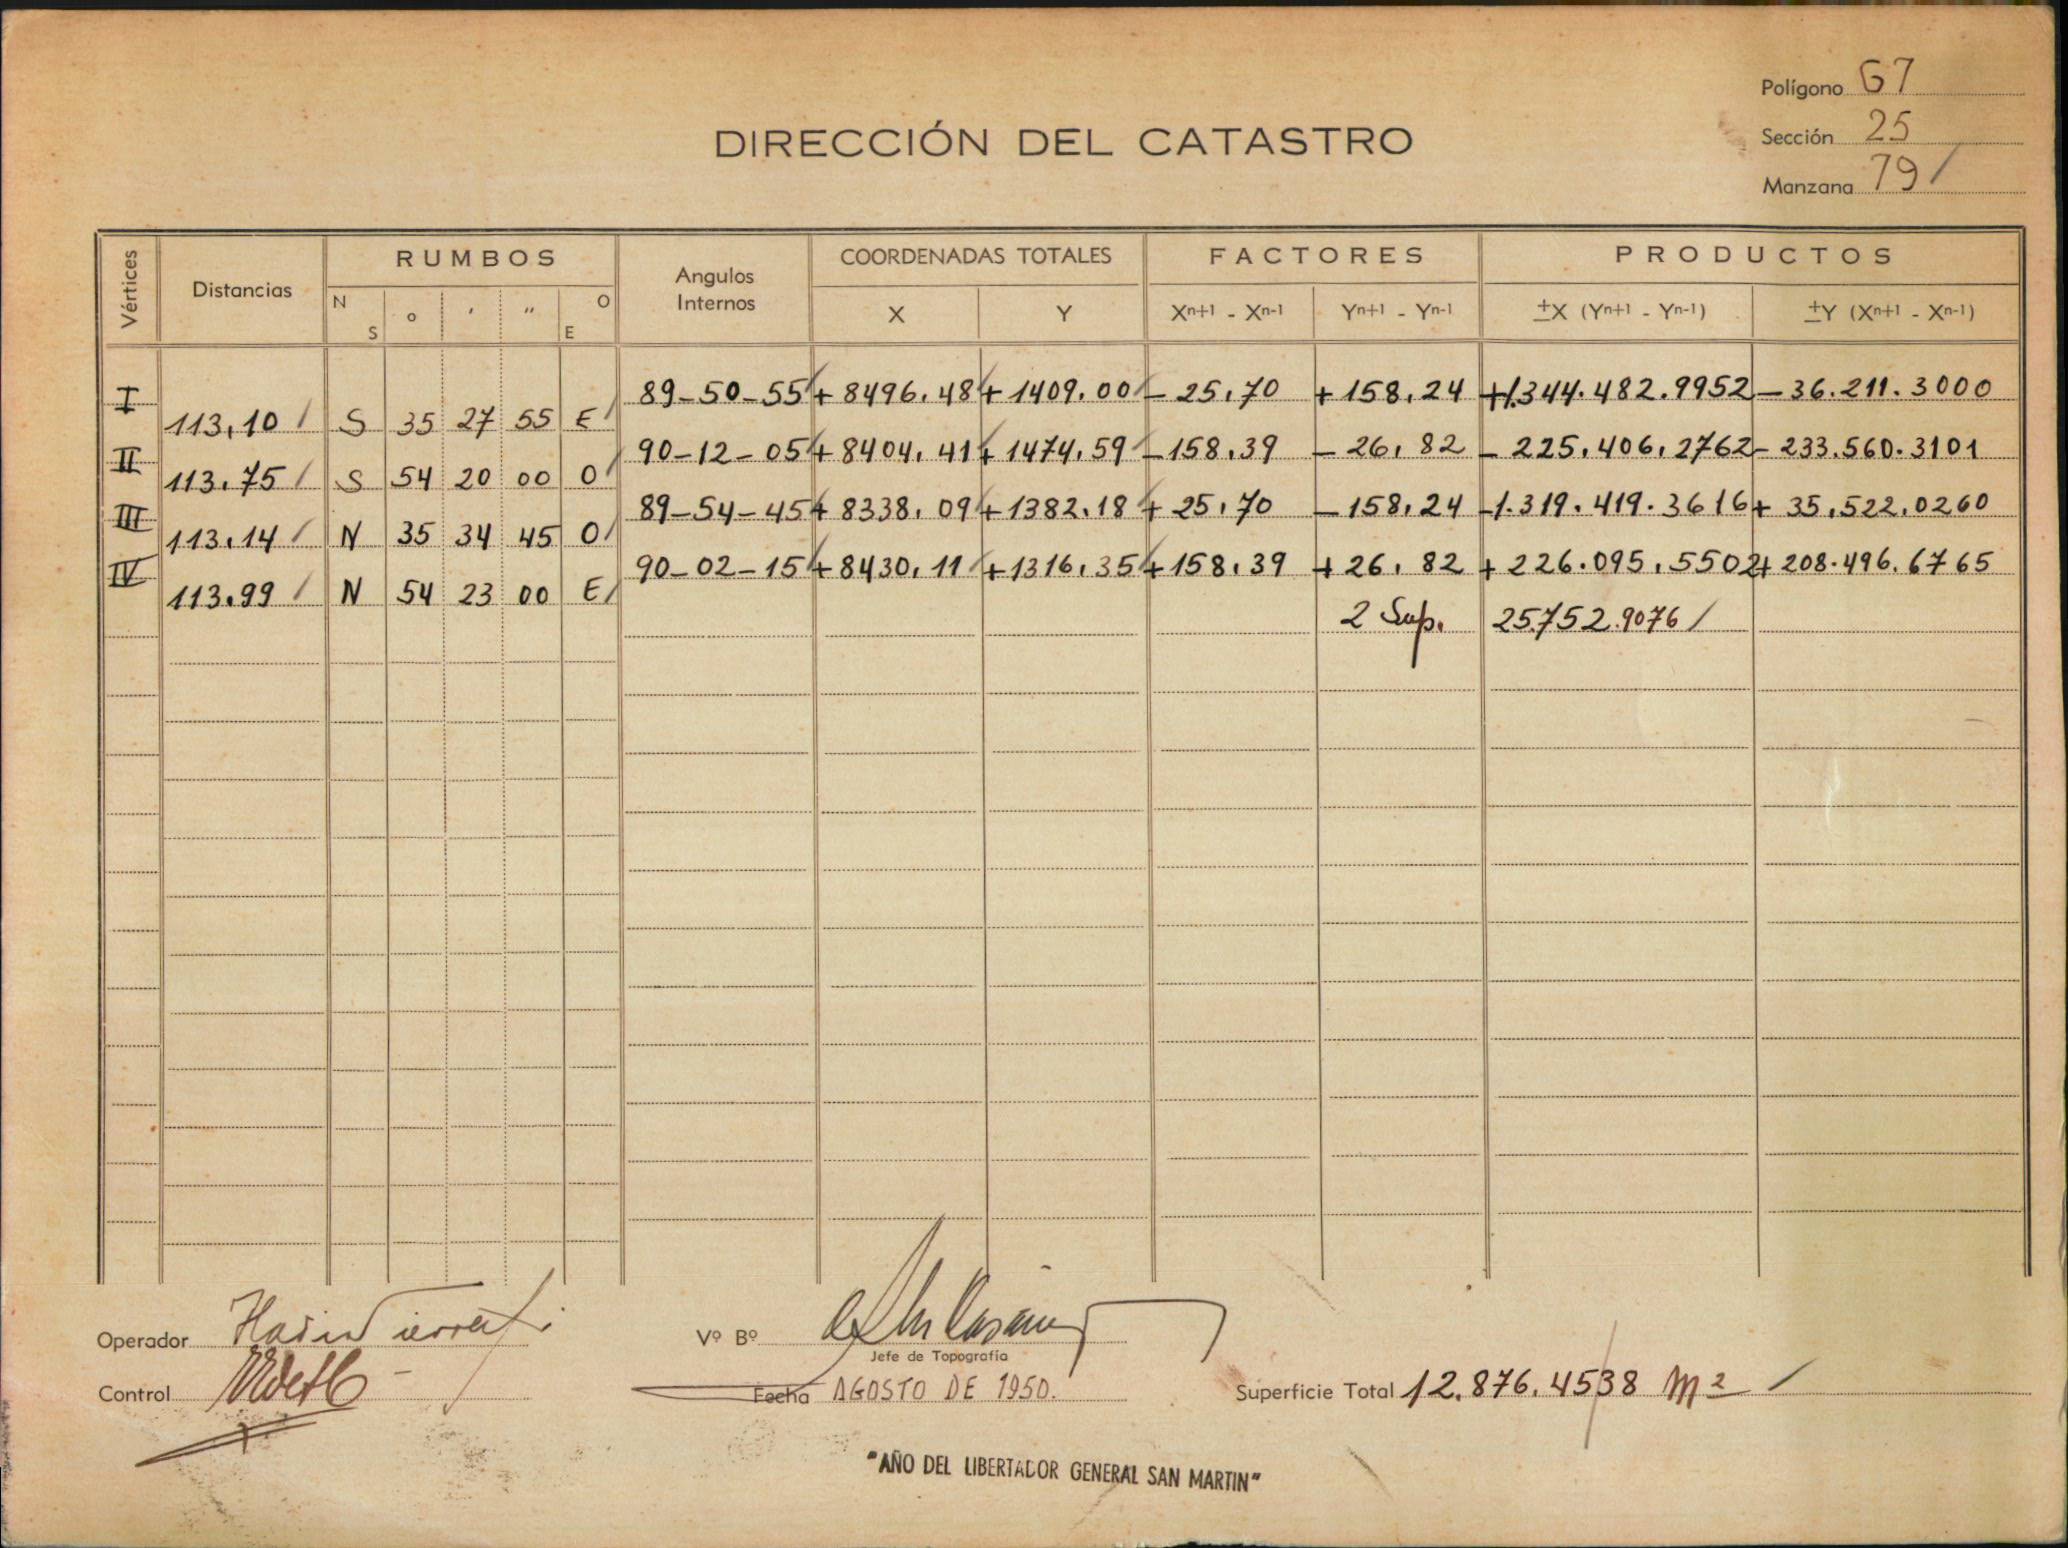 Polígono G7
Sección 25
Manzana 79 /
DIRECCIÓN DEL CATASTRO
Vértices Distancias RUMBOS Angulos Internos COORDENADAS TOTALES FACTORES PRODUCTOS
N S o ' " O E X Y Xn+1 - Xn-1 Yn+1 - Yn-1 ±X (Yn+1 - Yn-1) ±Y (Xn+1 - Xn-1)
I 89-50-55 + 8496,48 + 1409,00 - 25,70 + 158,24 +1.344.482.9952 - 36.211.3000
113,10 / S 35 27 55 E /
II 90-12-05 + 8404,41 + 1474,59 - 158,39 - 26,82 - 225.406,2762 - 233.560.3101
113,75 / S 54 20 00 O /
III 89-54-45 + 8338,09 + 1382,18 + 25,70 - 158,24 -1.319.419.3616 + 35.522,0260
113,14 / N 35 34 45 O /
IV 90-02-15 + 8430,11 + 1316,35 + 158,39 + 26,82 + 226.095,5502 + 208.496.6765
113.99 / N 54 23 00 E /
2 Sup. 25.752.9076 /
Operador
Vº Bº
Jefe de Topografía
Control
Fecha AGOSTO DE 1950.
Superficie Total 12.876.4538 m2 /
"AÑO DEL LIBERTADOR GENERAL SAN MARTIN"